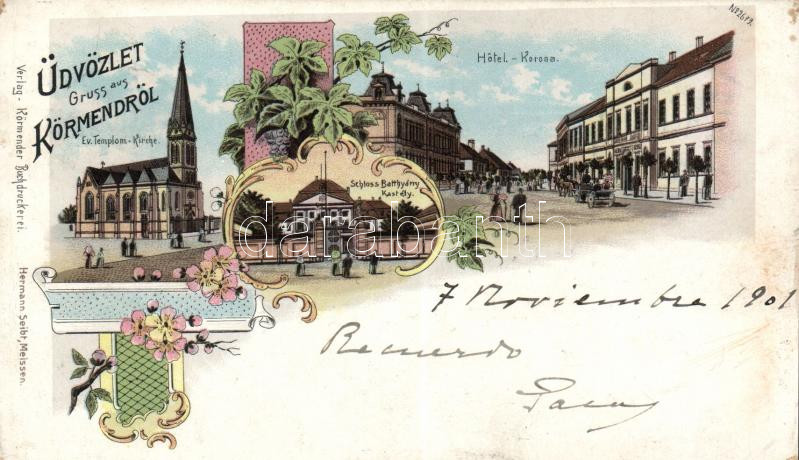 ÜDVÖZLET
Gruss aus
KÖRMENDRÖL
Ev. Templom.-Kirche.
Hôtel. - Korona.
No 2673.
Schloss Batthyány
Kastély.
darabanth
Verlag - Körmender Buchdruckerei.
Hermann Seibt, Meissen.
7 Noviembre 1901
Recuerdo